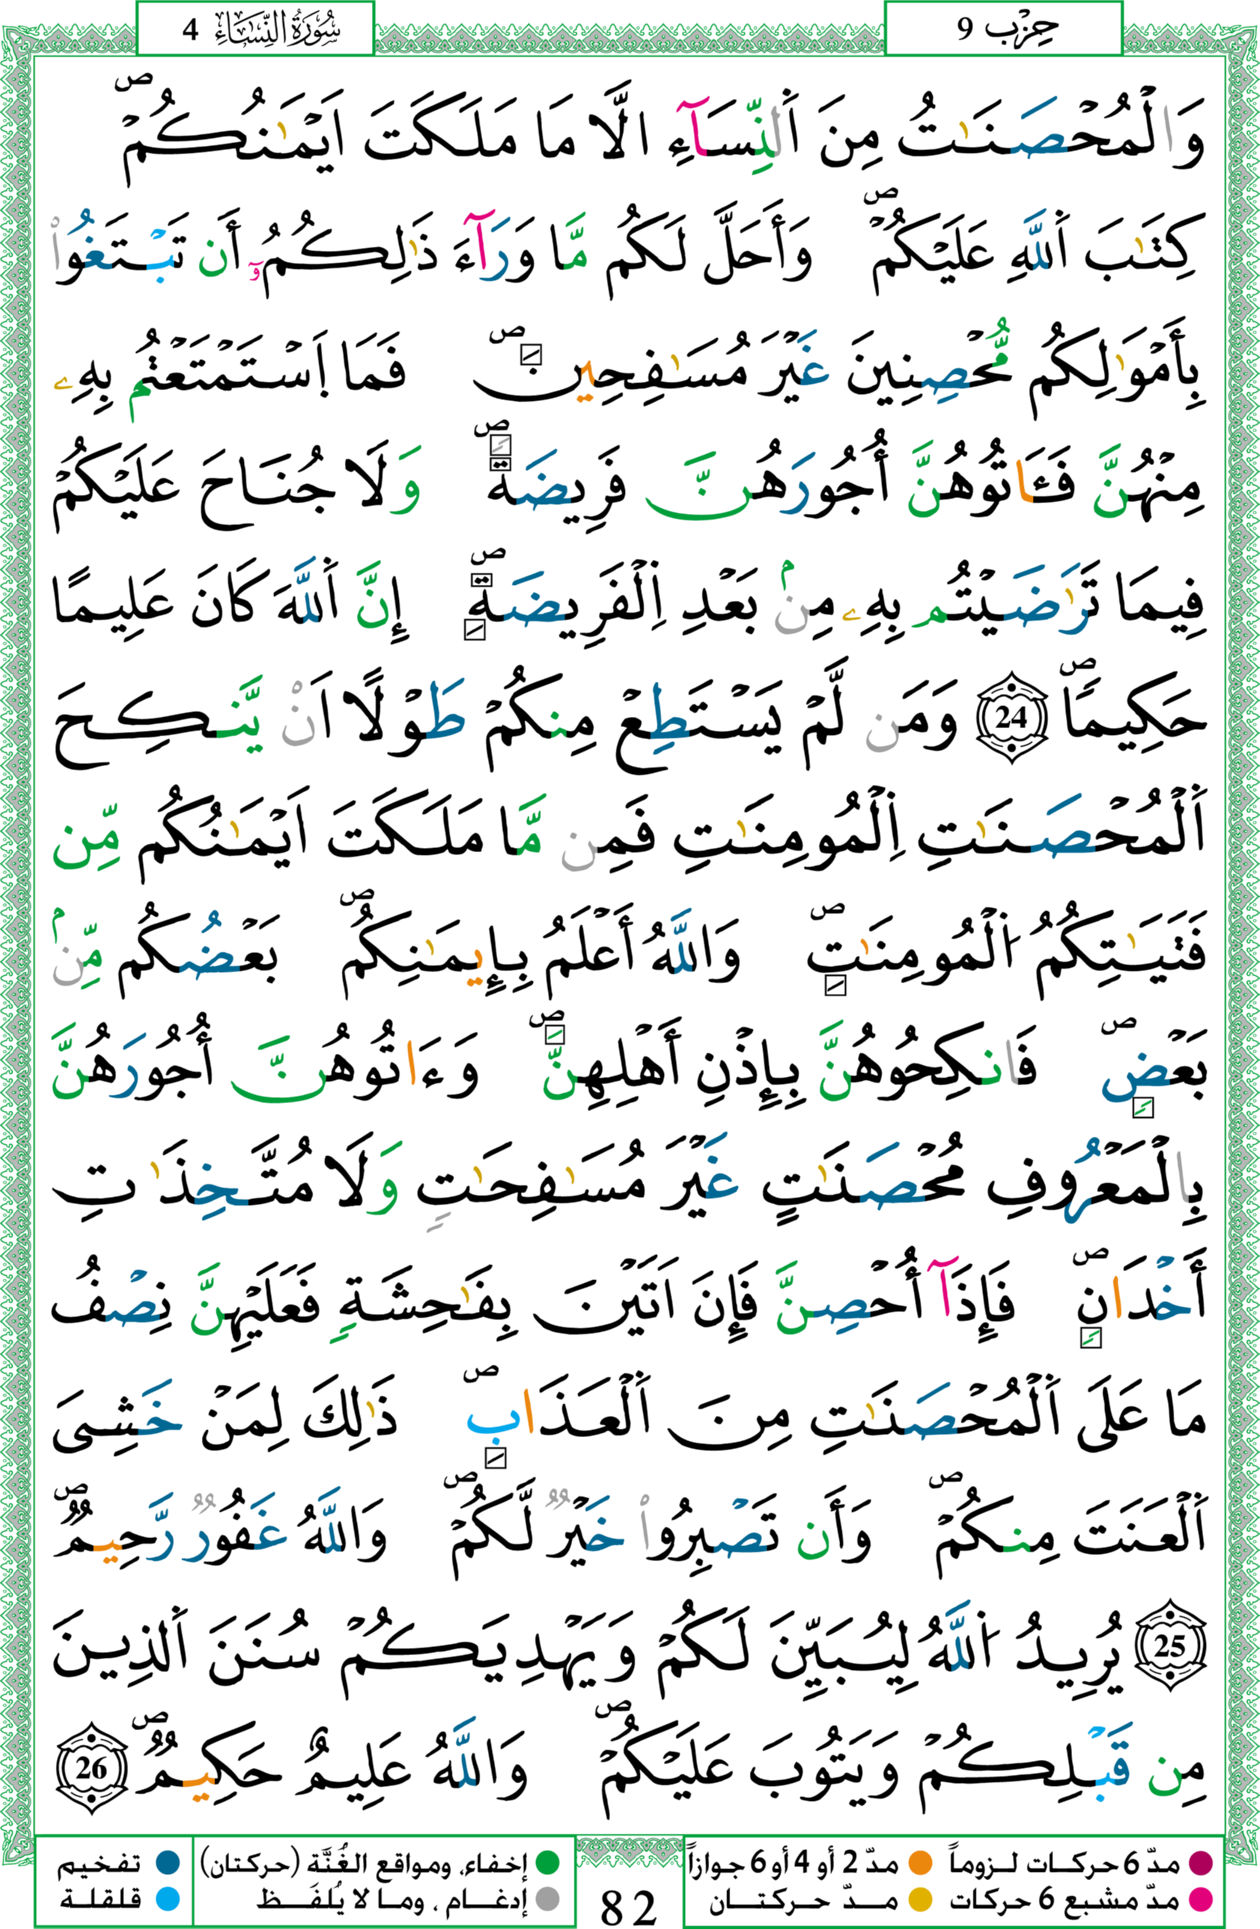 حِزْب 9
سُورَةُ النِّسَاءِ 4
وَالْمُحْصَنَٰتُ مِنَ اَ۬لنِّسَآءِ الَّا مَا مَلَكَتَ اَيْمَٰنُكُمْۖ
كِتَٰبَ اَ۬للَّهِ عَلَيْكُمْۖ وَأَحَلَّ لَكُم مَّا وَرَآءَ ذَٰلِكُمُۥٓ أَن تَبْتَغُواْ
بِأَمْوَٰلِكُم مُّحْصِنِينَ غَيْرَ مُسَٰفِحِينَۖ فَمَا اَ۪سْتَمْتَعْتُم بِهِۦ
مِنْهُنَّ فَـَٔاتُوهُنَّ أُجُورَهُنَّ فَرِيضَةًۖ وَلَا جُنَاحَ عَلَيْكُمْ
فِيمَا تَرَٰضَيْتُم بِهِۦ مِنۢ بَعْدِ اِ۬لْفَرِيضَةِۖ إِنَّ اَ۬للَّهَ كَانَ عَلِيمًا
حَكِيمًاۖ 24 وَمَن لَّمْ يَسْتَطِعْ مِنكُمْ طَوْلًا اَنْ يَّنكِحَ
اَ۬لْمُحْصَنَٰتِ اِ۬لْمُومِنَٰتِ فَمِن مَّا مَلَكَتَ اَيْمَٰنُكُم مِّن
فَتَيَٰتِكُمُ اُ۬لْمُومِنَٰتِۖ وَاللَّهُ أَعْلَمُ بِإِيمَٰنِكُمۖ بَعْضُكُم مِّنۢ
بَعْضٖۖ فَانكِحُوهُنَّ بِإِذْنِ أَهْلِهِنَّۖ وَءَاتُوهُنَّ أُجُورَهُنَّ
بِالْمَعْرُوفِ مُحْصَنَٰتٍ غَيْرَ مُسَٰفِحَٰتٖ وَلَا مُتَّخِذَٰتِ
أَخْدَانٖۖ فَإِذَآ أُحْصِنَّ فَإِنَ اَتَيْنَ بِفَٰحِشَةٖ فَعَلَيْهِنَّ نِصْفُ
مَا عَلَى اَ۬لْمُحْصَنَٰتِ مِنَ اَ۬لْعَذَابِۖ ذَٰلِكَ لِمَنْ خَشِىَ
اَ۬لْعَنَتَ مِنكُمْۖ وَأَن تَصْبِرُواْ خَيْرٞ لَّكُمْۖ وَاللَّهُ غَفُورٞ رَّحِيمٞۖ
25 يُرِيدُ اُ۬للَّهُ لِيُبَيِّنَ لَكُمْ وَيَهْدِيَكُمْ سُنَنَ اَ۬لذِينَ
مِن قَبْلِكُمْ وَيَتُوبَ عَلَيْكُمْۖ وَاللَّهُ عَلِيمٌ حَكِيمٞۖ 26
مدّ 6 حركات لـزومـاً
مدّ 2 أو 4 أو 6 جوازاً
إخفاء، ومواقع الغُنَّة (حركتان)
تفخيم
مدّ مشبع 6 حركات
مــدّ حـركـتــان
إدغــام ، ومـا لا يُلفَــظ
قلقلة
82